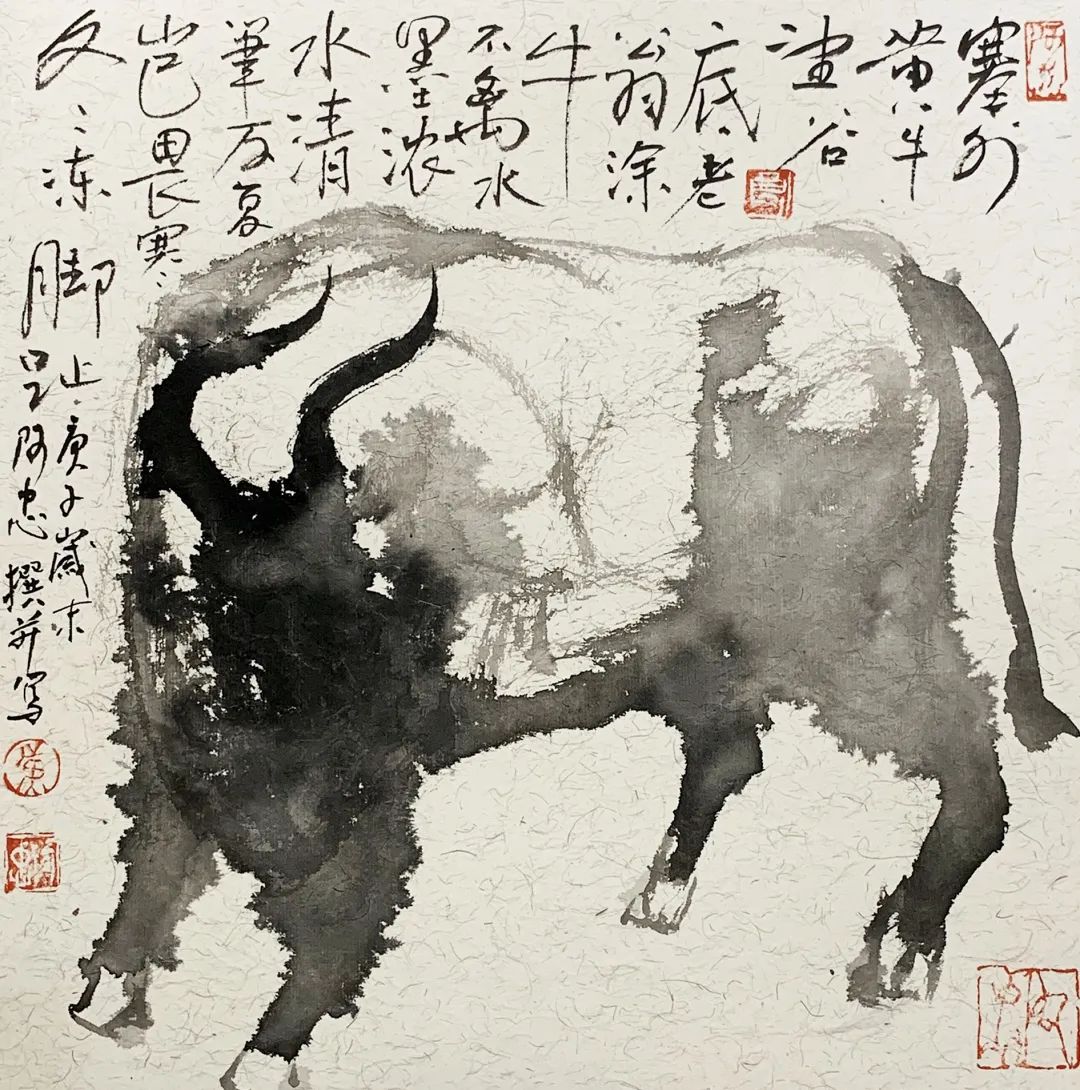 塞外
黄牛
谷
底老
翁涂
牛
不离水
墨浓
水清
筆反复
岂畏寒
冬冻
脚趾
庚子嵗末
阿忠撰并写